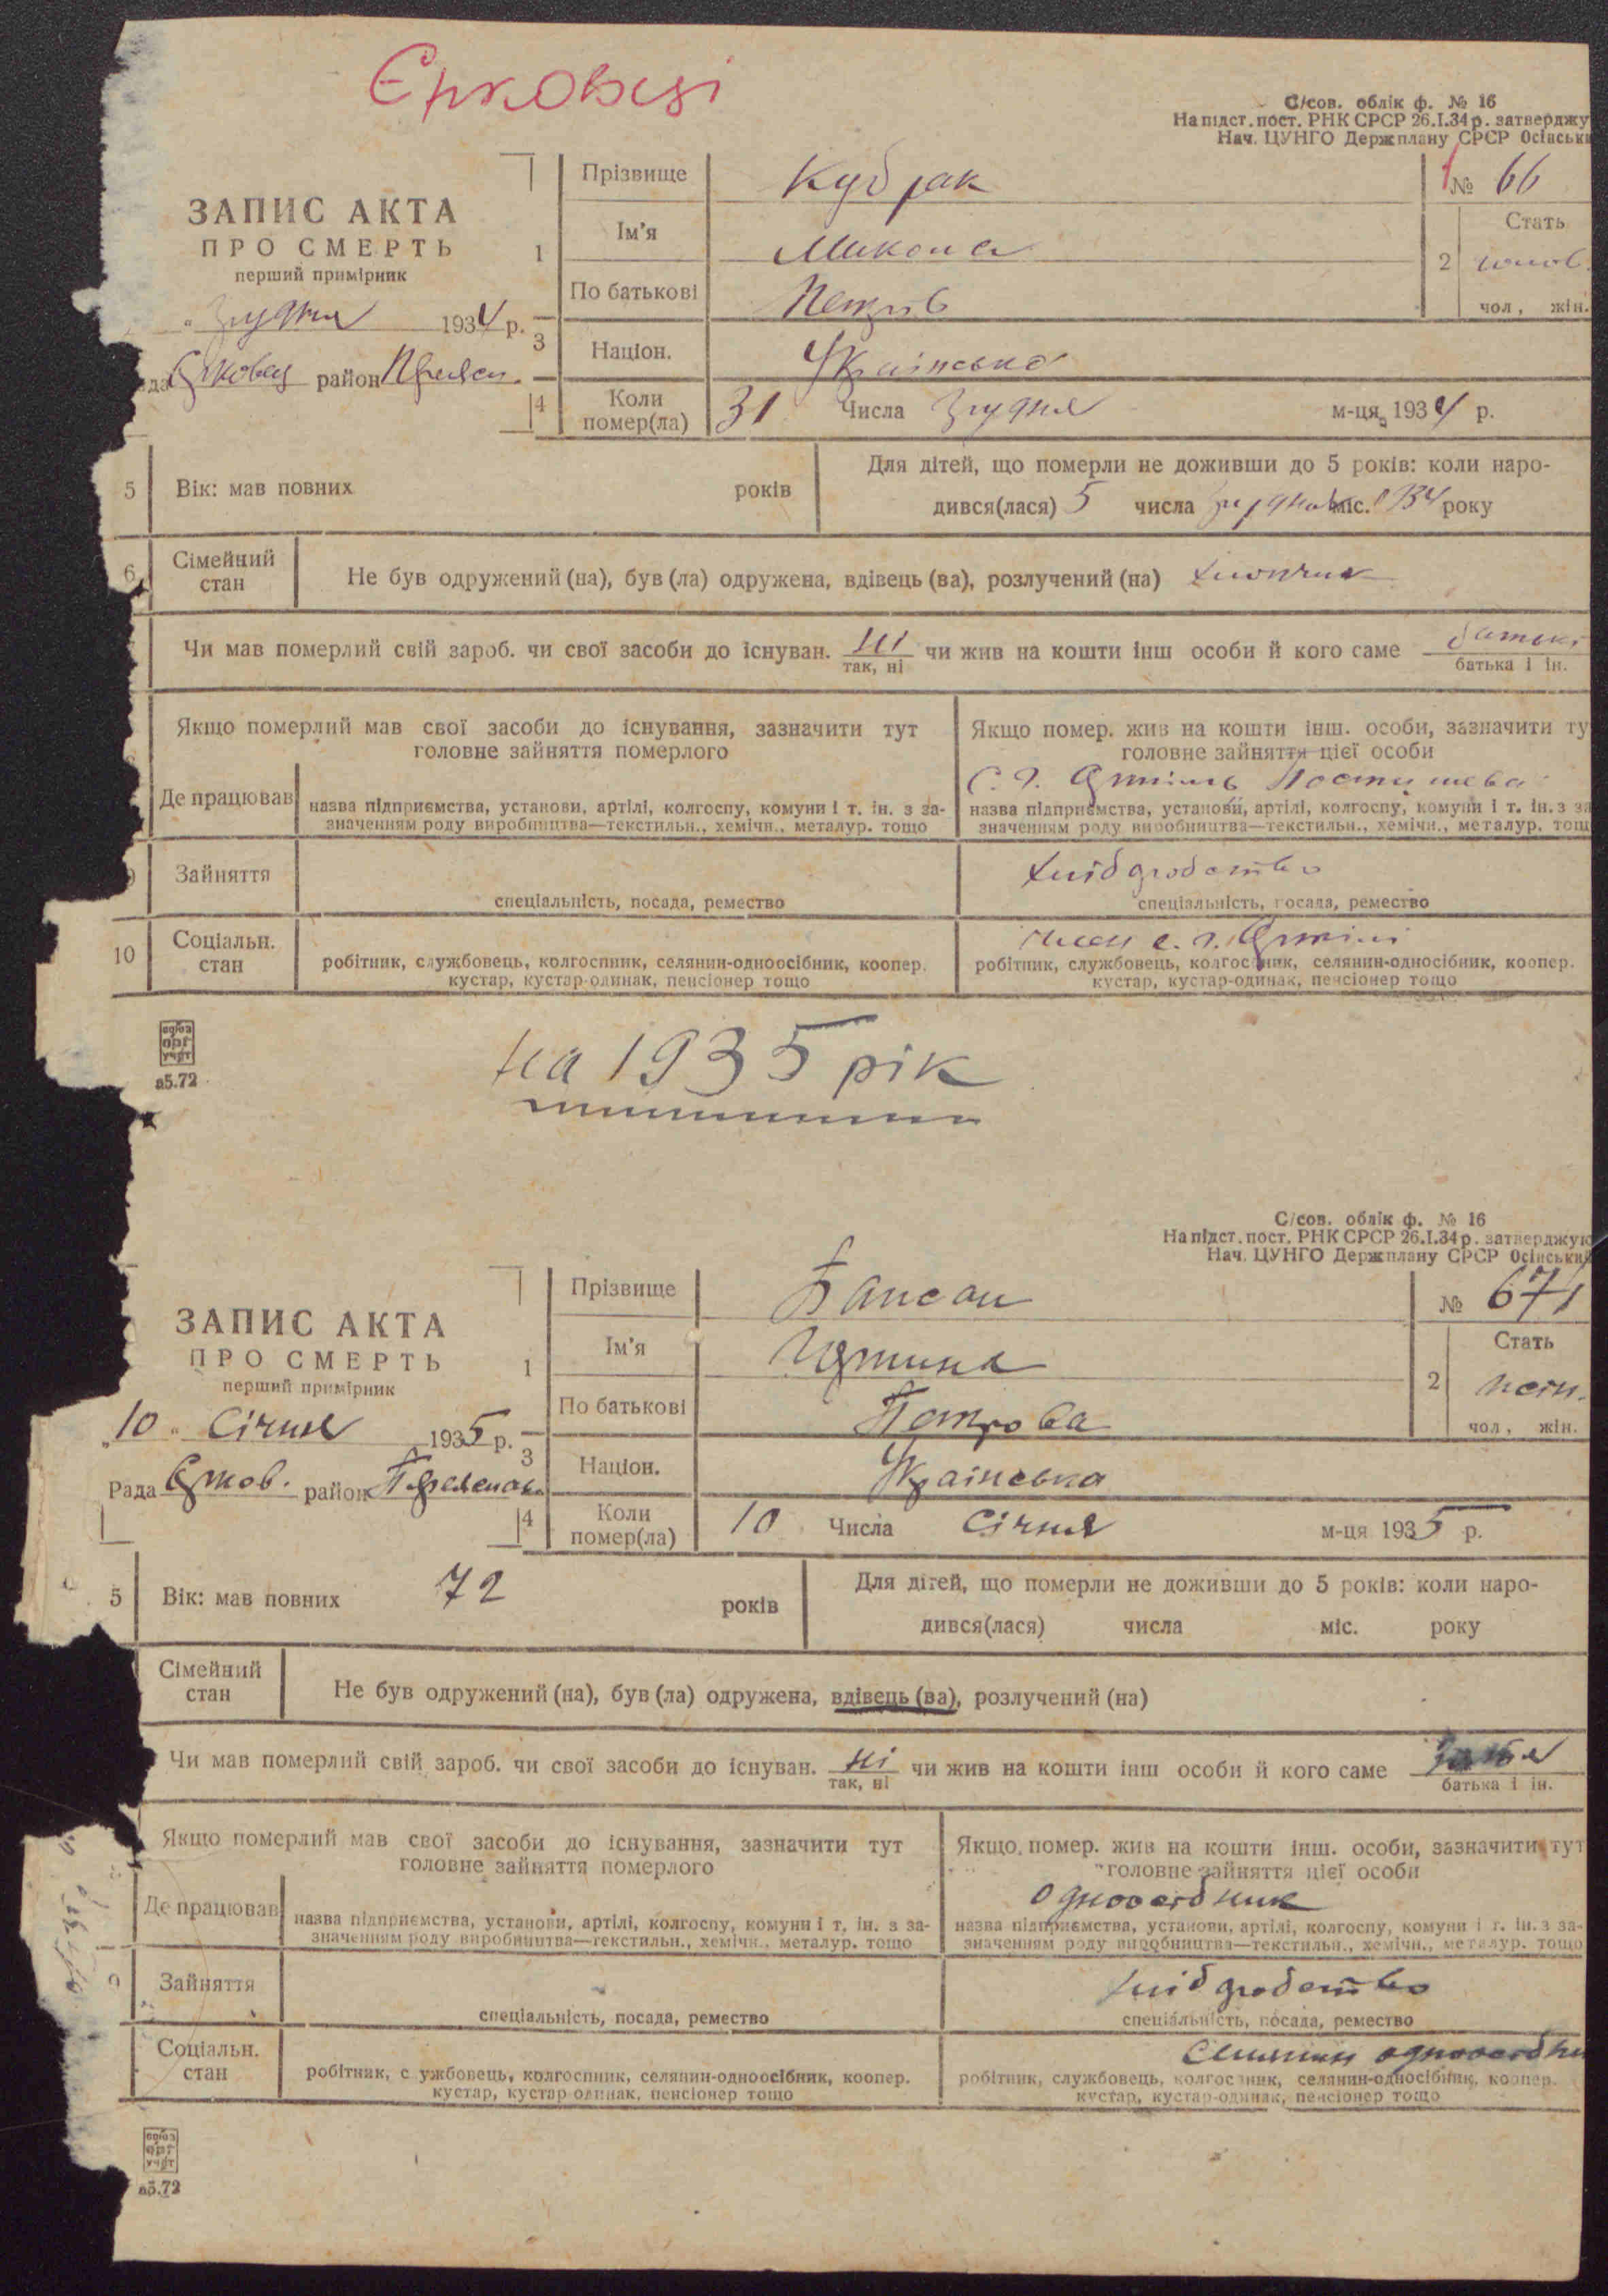 Єрковці
С/сов. облік ф. № 16
На підст. пост. РНК СРСР 26.I.34 р. затверджу
Нач. ЦУНГО Держплану СРСР Осінськи
ЗАПИС АКТА
ПРО СМЕРТЬ
перший примірник
" грудня 1934 р.
да Єрковец район Переяс.
1 Прізвище Кубрак № 66
Ім'я Микола
По батькові Петрів
2 Стать чолов.
чол, жін.
3 Націон. Українська
4 Коли помер(ла) 31 Числа грудня м-ця 1934 р.
5 Вік: мав повних років
Для дітей, що померли не доживши до 5 років: коли наро-
дився(лася) 5 числа грудня міс. 1934 року
6 Сімейний стан Не був одружений (на), був (ла) одружена, вдівець (ва), розлучений (на)
Чи мав померлий свій зароб. чи свої засоби до існуван. ні чи жив на кошти інш особи й кого саме батька
так, ні батька і ін.
Якщо померлий мав свої засоби до існування, зазначити тут
головне зайняття померлого
Якщо помер. жив на кошти інш. особи, зазначити ту
головне зайняття цієї особи
Де працював
С. г. Артіль Постишева
назва підприємства, установи, артілі, колгоспу, комуни і т. ін. з за-
значенням роду виробництва—текстильн., хемічн., металур. тощо
назва підприємства, установи, артілі, колгоспу, комуни і т. ін. з за
значенням роду виробництва—текстильн., хемічн., металур. тощ
9 Зайняття хліборобство
спеціальність, посада, ремество
спеціальність, посада, ремество
10 Соціальн. стан член с. г. Артілі
робітник, службовець, колгоспник, селянин-одноосібник, коопер.
кустар, кустар-одинак, пенсіонер тощо
робітник, службовець, колгоспник, селянин-односібник, коопер.
кустар, кустар-одинак, пенсіонер тощо
союз
орг
учет
а5.72
на 1935 рік
С/сов. облік ф. № 16
На підст. пост. РНК СРСР 26.I.34 р. затверджую
Нач. ЦУНГО Держплану СРСР Осінський
ЗАПИС АКТА
ПРО СМЕРТЬ
перший примірник
"10" Січня 1935 р.
Рада Єрков. район Переяслав
1 Прізвище № 67
Ім'я
По батькові Петрова
2 Стать жін.
чол, жін.
3 Націон. Українська
4 Коли помер(ла) 10 Числа Січня м-ця 1935 р.
5 Вік: мав повних 72 років
Для дітей, що померли не доживши до 5 років: коли наро-
дився(лася) числа міс. року
Сімейний стан Не був одружений (на), був (ла) одружена, вдівець (ва), розлучений (на)
Чи мав померлий свій зароб. чи свої засоби до існуван. ні чи жив на кошти інш особи й кого саме
так, ні батька і ін.
Якщо померлий мав свої засоби до існування, зазначити тут
головне зайняття померлого
Якщо помер. жив на кошти інш. особи, зазначити тут
головне зайняття цієї особи
Де працював
Одноосібник
назва підприємства, установи, артілі, колгоспу, комуни і т. ін. з за-
значенням роду виробництва—текстильн., хемічн., металур. тощо
назва підприємства, установи, артілі, колгоспу, комуни і т. ін. з за-
значенням роду виробництва—текстильн., хемічн., металур. тощо
9 Зайняття хліборобство
спеціальність, посада, ремество
спеціальність, посада, ремество
Соціальн. стан Селянин одноосібни
робітник, с ужбовець, колгоспник, селянин-одноосібник, коопер.
кустар, кустар-одинак, пенсіонер тощо
робітник, службовець, колгоспник, селянин-односібник, коопер.
кустар, кустар-одинак, пенсіонер тощо
союз
орг
учет
а5.72